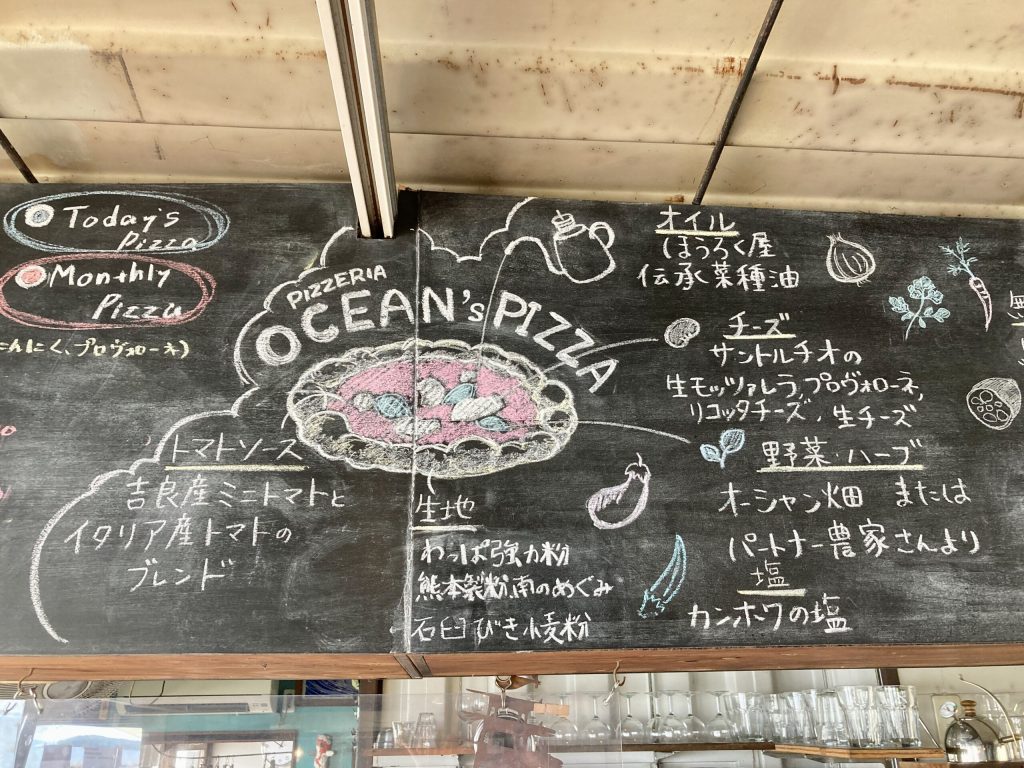 Today's
Pizza
Monthly
Pizza
にんにく、プロヴォローネ)
PIZZERIA
OCEAN's PIZZA
トマトソース
吉良産ミニトマトと
イタリア産トマトの
ブレンド
生地
わっぱ強力粉
熊本製粉南のめぐみ
石臼びき小麦粉
オイル
ほうろく屋
伝承菜種油
チーズ
サントルチオの
生モッツァレラ,プロヴォローネ,
リコッタチーズ,生チーズ
野菜・ハーブ
オーシャン畑 または
パートナー農家さんより
塩
カンホワの塩